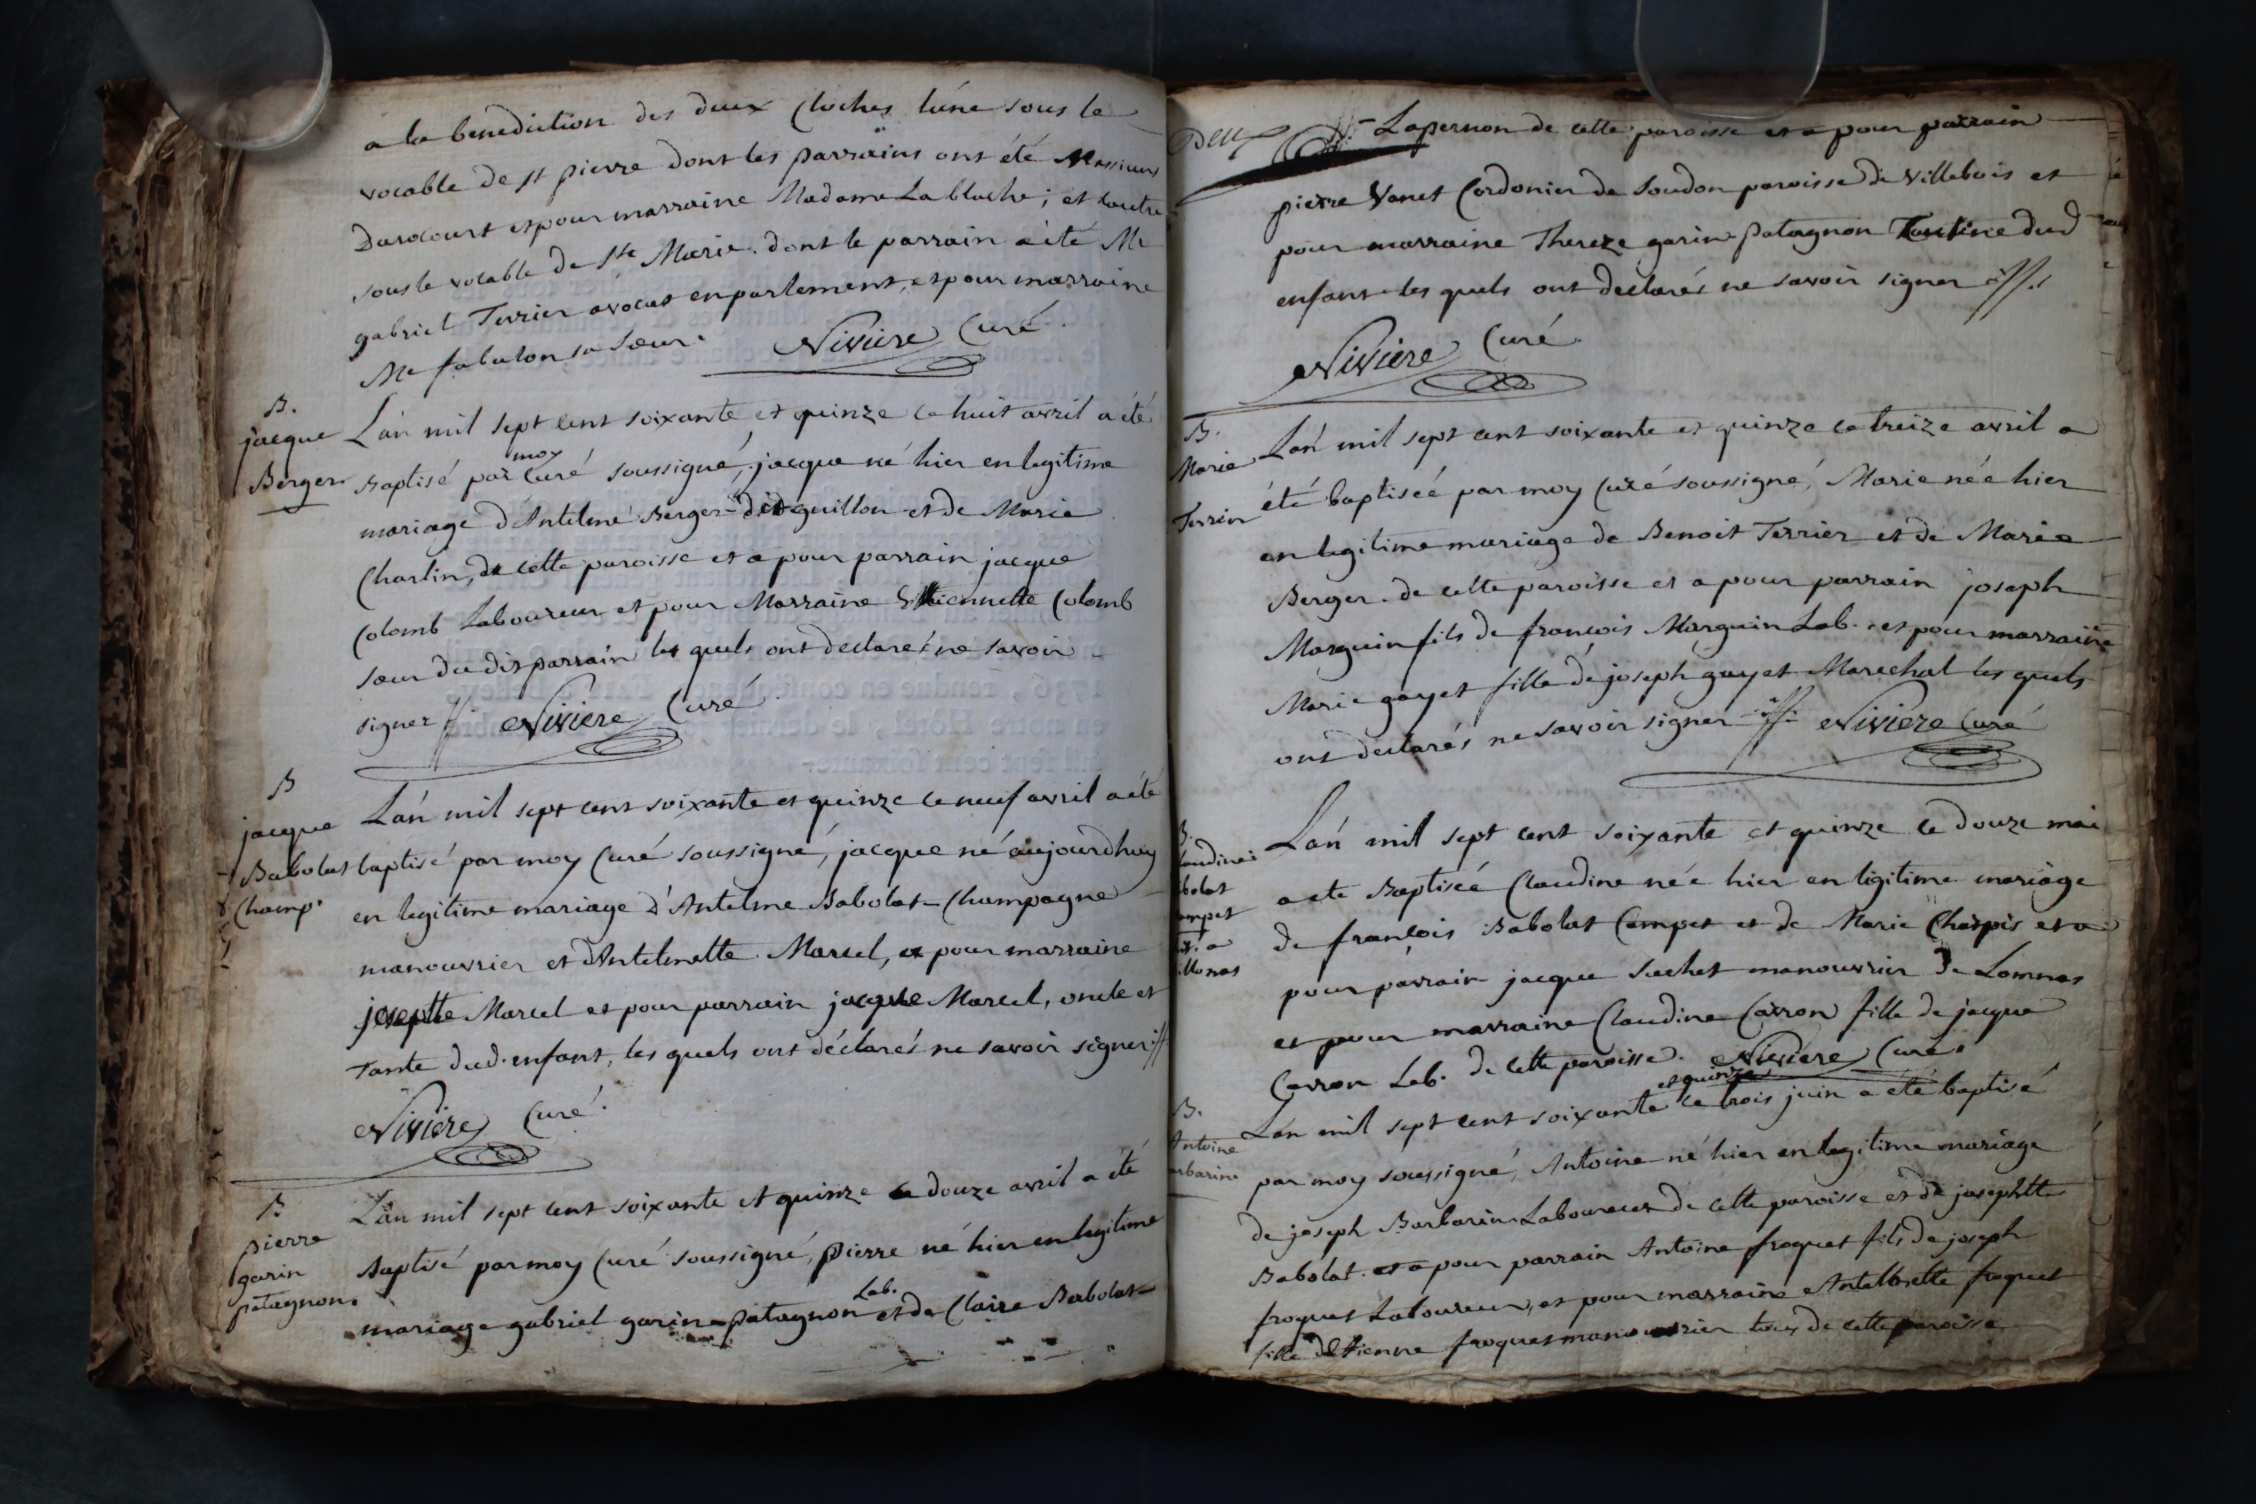 a la benediction des deux Cloches lúne sous le
vocable de st pierre dont les parrains ont été Messieurs
Darcourt et pour marraine Madame La blache ; et lautre
sous le vocable de ste Marie. dont le parrain a èté Mr
gabriel Terrier avocat en parlement, et pour marraine
Me fabulon sa Sœur. Niviere Curé.
B.
jacque
Berger
L'an mil sept cent soixante et quinze ce huit avril a été
Baptisé par moy Curé soussigné, jacque né hier en legitime
mariage d'Antelme Berger dit guillon et de Marie
Charlin, de cette paroisse et a pour parrain jacque
Colomb Laboureur et pour Marraine Ettiennette Colomb
sœur du dit parrain les quels ont declarés ne savoir
signer //. Niviere Curé
B
jacque
Babolat
Champ.
L'an mil sept cent soixante et quinze ce neuf avril a été
baptisé par moy Curé soussigné, jacque né aujourdhuy
en legitime mariage d'Antelme Babolat-Champagne
manouvrier et d'Antelmette Marcel, et pour marraine
josephte Marcel et pour parrain jacque Marcel, oncle et
Tante dud. enfant, les quels ont déclarés ne savoir signer //
Niviere Curé.
B
pierre
garin
patagnon.
L'an mil sept cent soixante et quinze ce douze avril a été
Baptisé par moy Curé soussigné, pierre né hier en legitime
mariage gabriel garin-patagnon Lab. et de Claire Babolat-
Deux
Lapernon de cette paroisse et a pour parrain
pierre Vanet Cordonier de Soudon paroisse de Villebois et
pour marraine Thereze garin patagnon Tantine dud
enfant les quels ont declarés ne savoir signer //.
Niviere Curé.
B.
Marie
Terrier
L'an mil sept cent soixante et quinze ce treize avril a
été baptiseé par moy Curé soussigné, Marie née hier
en legitime mariage de Benoit Terrier et de Marie
Berger. de cette paroisse et a pour parrain joseph
Marguin fils de francois Marguin Lab. et pour marraine
Marie gayet fille de joseph gayet Marechal les quels
ont declarés ne savoir signer // Niviere Curé
B.
laudine
bolat
ampet
L'an mil sept cent soixante et quinze ce douze mai
a ete Baptiseé Claudine née hier en ligitime mariage
de françois Babolat Campet et de Marie Charpis et a
pour parrain jacque Suchet manouvrier de Lomnas
et pour marraine Claudine Carron fille de jacque
Carron Lab. de cette paroisse. Niviere Curé.
B.
Antoine
arbarin
L'an mil sept cent soixante et quinze ce trois juin a eté baptisé
par moy soussigné, Antoine né hier en legitime mariage
de joseph Barbarin Laboureur de cette paroisse et de josephtte
Babolat. et a pour parrain Antoine froquet fils de joseph
froquet Laboureur, et pour marraine Antelmette froquet
fille d'Etienne froquet manouvrier tous de cette paroisse